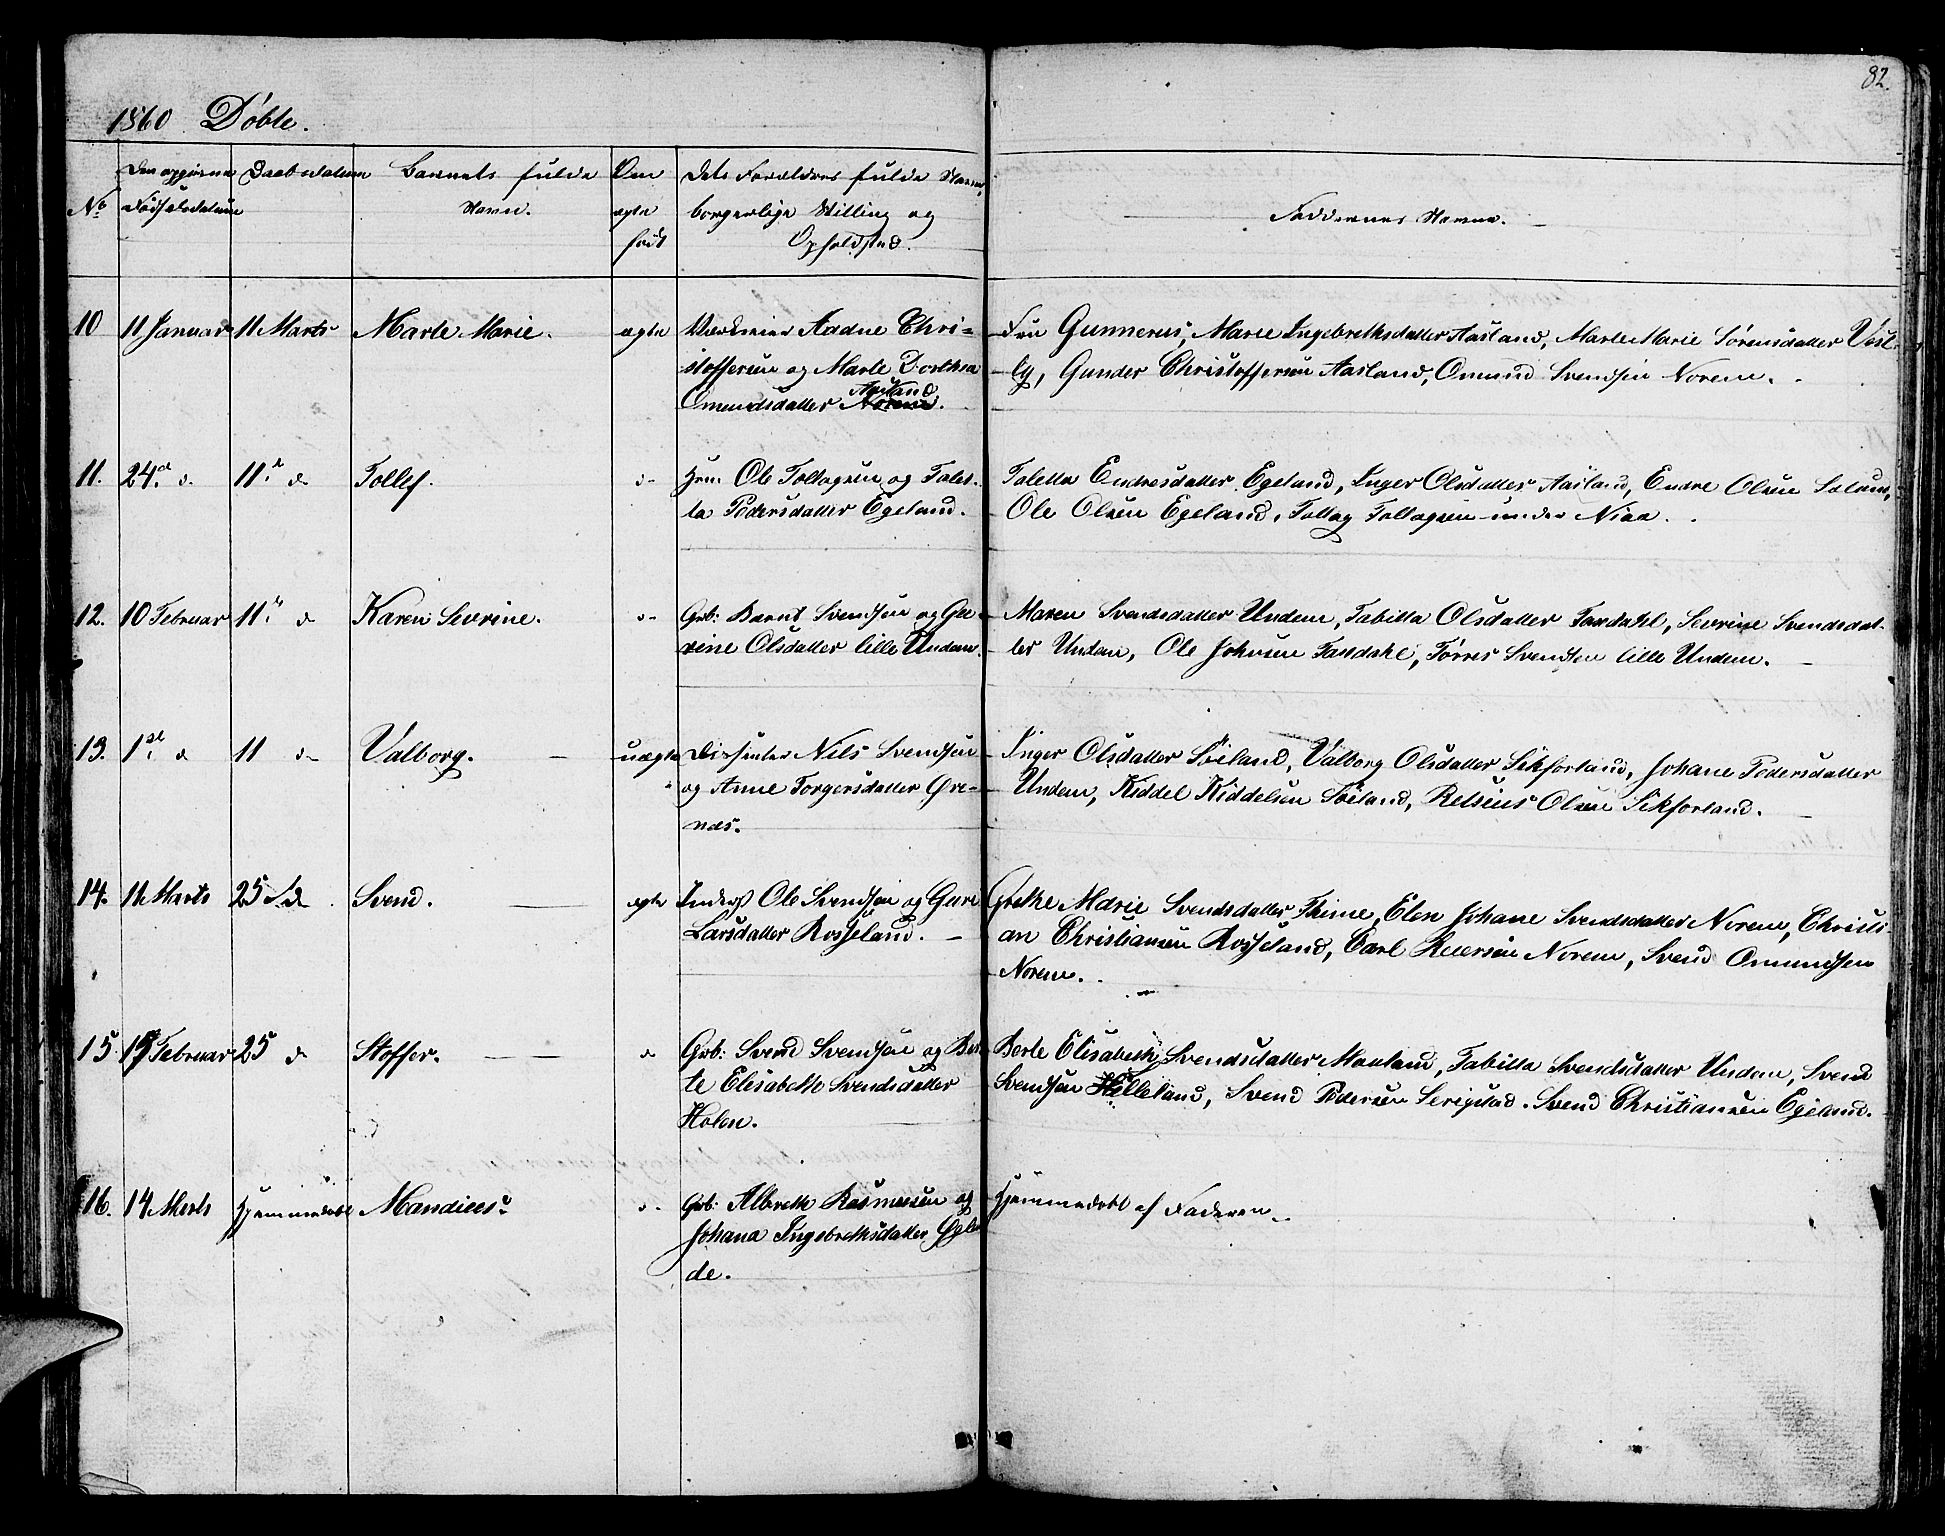 82.
1860 Döbte.
No
Den opgivne
Fødselsdatum
Daabsdatum
Barnets fulde
Navn.
Om
ægte
født
Dets Forældres fulde Navn,
borgerlige Stilling og
Opholdsted.
Faddernes Navne.
10 11 Januar 11 Marts Marte Marie. ægte
Aadne Chri-
stoffersen og Marte Dorthea
Aasland
Omundsdatter Norem.
Fru Gunnerus, Marie Ingebrethsdatter Aasland, Marte Marie Sørensdatter Vest-
ly, Gunder Christoffersen Aasland, Omund Svendsen Norem.
11. 24 d. 11 d Tollef. d-
Ole Tollagsen og Talet-
ta Pedersdatter Egeland.
Taletta Endresdatter Egeland, Inger Olsdatter Aasland, Endre Olsen
Ole Olsen Egeland, Tollag Tollagsen under Niaa.
12. 10 Februar 11 d Karen Severine. d-
Grb: Bernt Svendsen og Gu-
rine Olsdatter lille Undem.
Maren Svendsdatter Undem, Tabitta Olsdatter Taxdahl, Severine Svendsdat-
ter Undem, Ole Johnsen Taxdahl, Tørres Svendsen lille Undem.
13. 1st d 11 d- Valborg. uægte
Dissenter Nils Svendsen
og Anne Torgersdatter Øre-
næs.
Inger Olsdatter Søiland, Valborg Olsdatter Sikforland, Johane Pedersdatter
Undem, Kiddel Kiddelsen Søiland, Retsius Olsen Sikforland.
14. 11 Marts 25 d Svend. ægte
Inderst Ole Svendsen og Guri
Larsdatter Rosseland.
Grethe Marie Svendsdatter Thime, Elen Johane Svendsdatter Norem, Christi-
an Christiansen Rosseland, Carl Petersen Norem, Svend Omundsen
Norem.
15. Februar 25 d Stoffer. d
Grb: Svend Svendsen og Ber-
te Elisabeth Svendsdatter
Holen.
Berte Elisabeth Svendsdatter Mauland, Tabitta Svendsdatter Undem, Svend
Svendsen Helleland, Svend Pedersen Serigstad. Svend Christiansen Egeland.
16. 14 Marts Hjemmedøbt Mandius. d.
Grb: Albreth Rasmusen og
Johana Ingebrethsdatter
de.
Hjemmedøbt af Faderen.